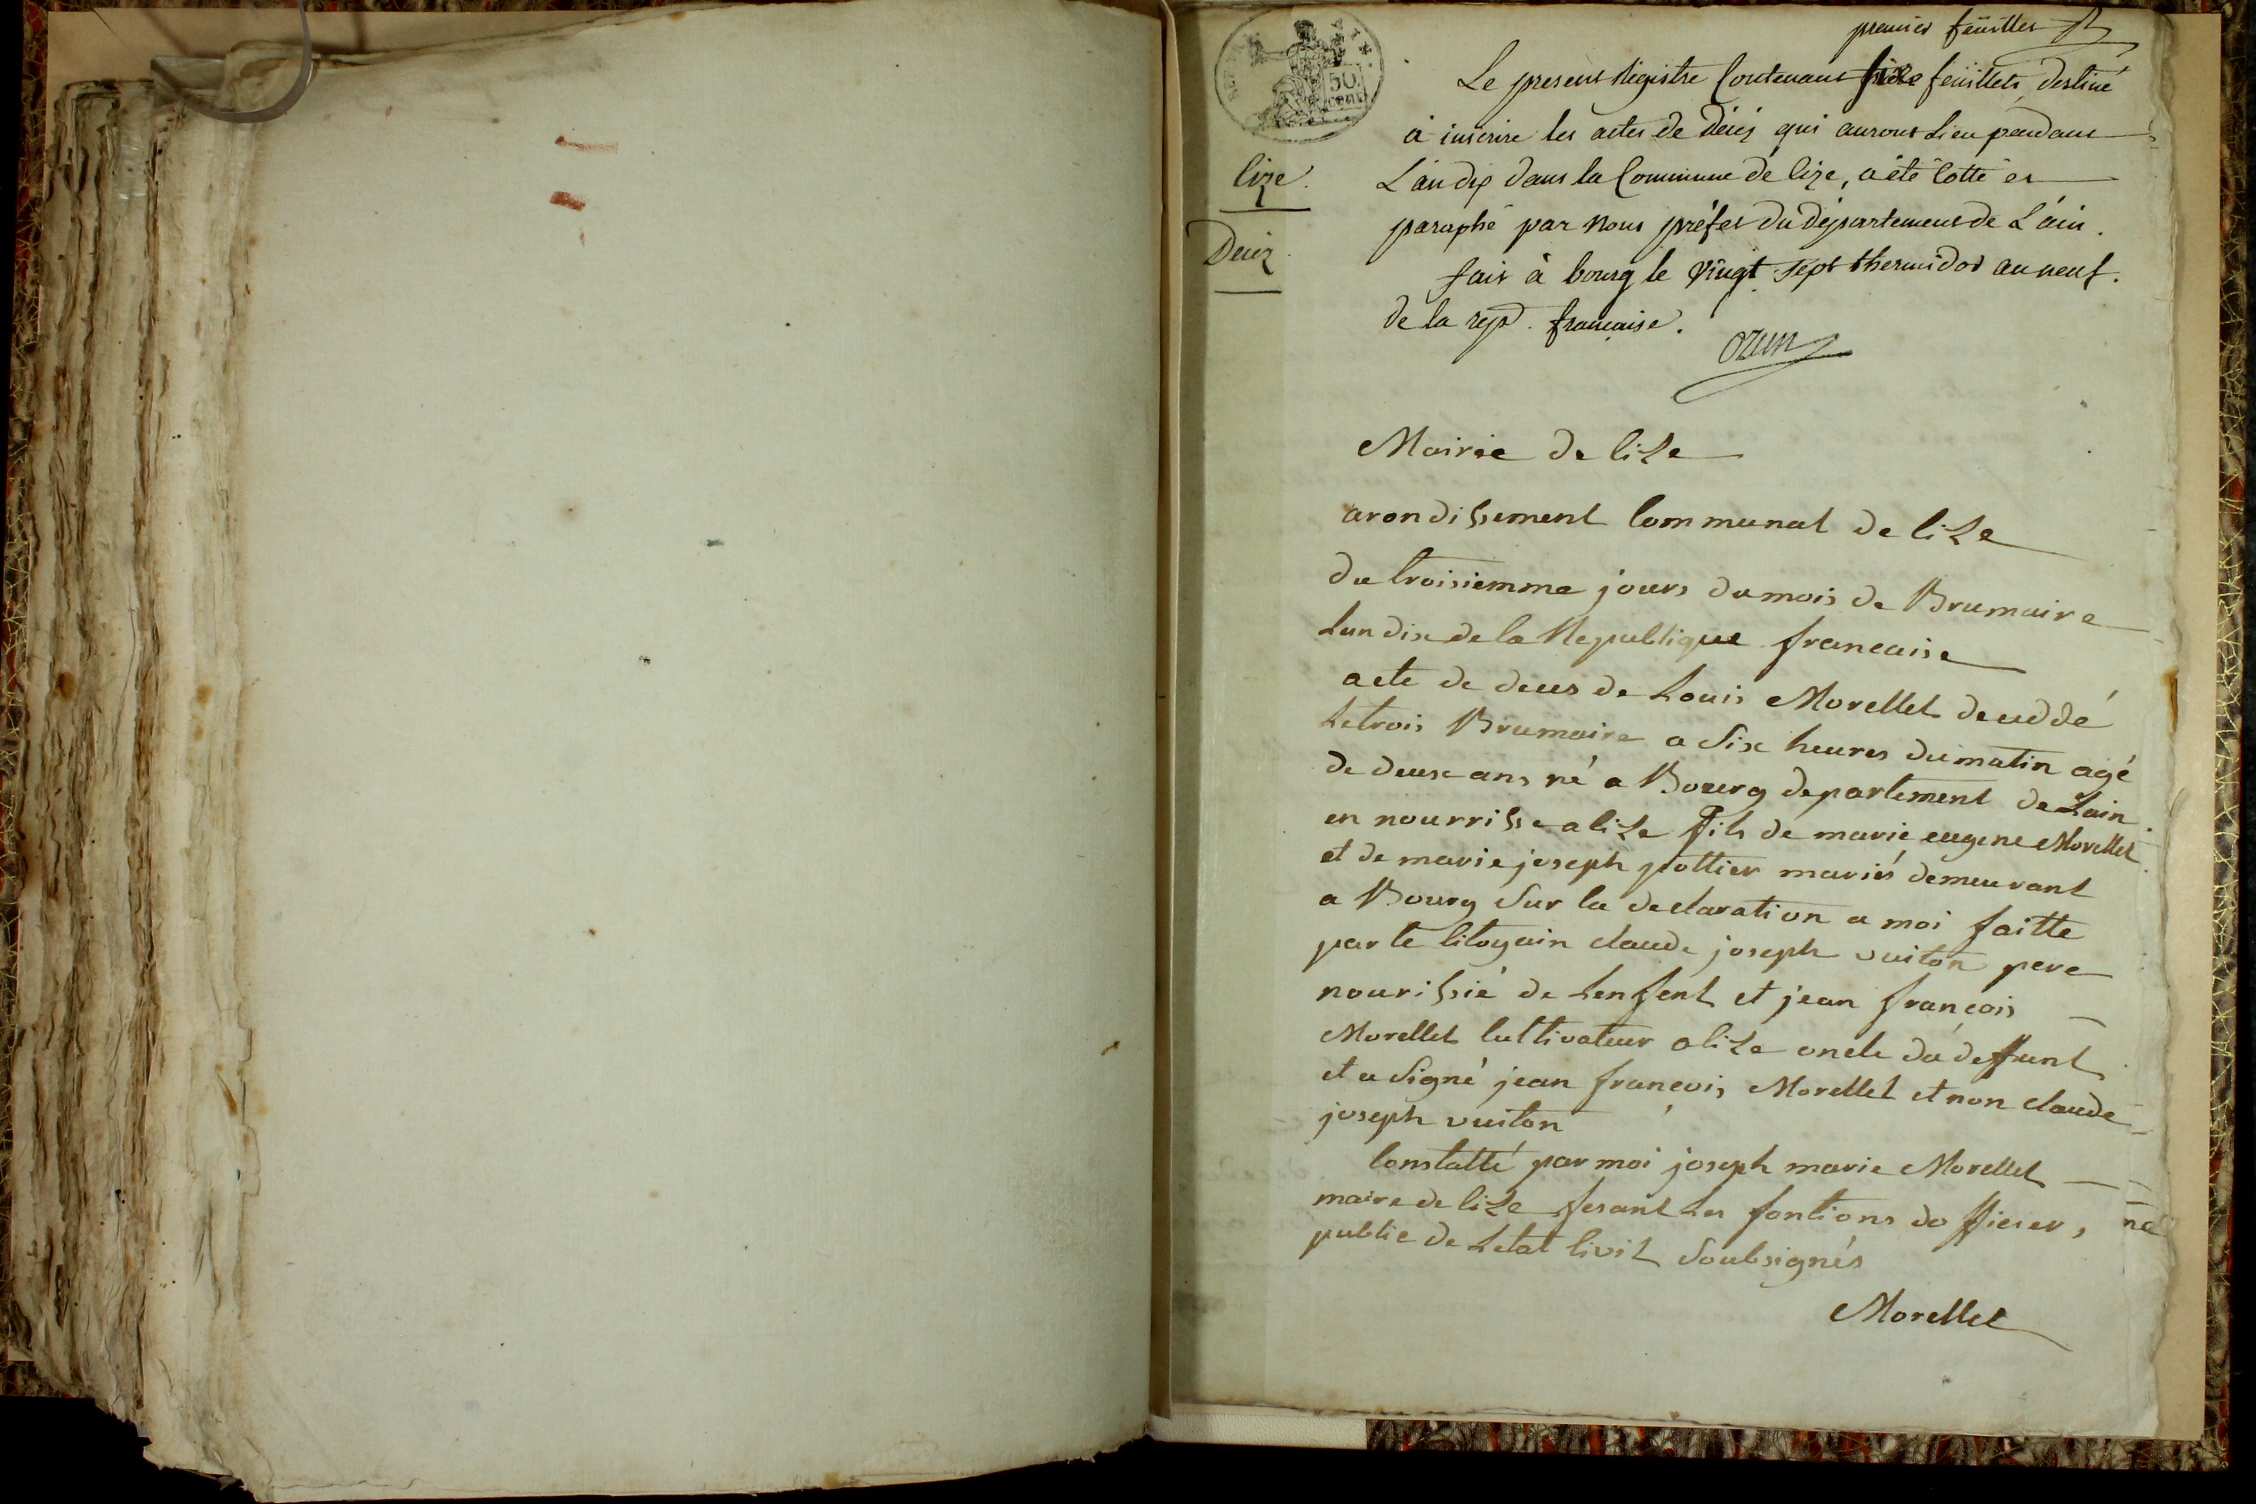 premier feuillet
50 cent
Le present Registre Contenant feuillets, destiné
à inscrire les actes de décés qui auront lieu pendant
L'an dix dans la Commune de Cize, a été Cotté et
paraphé par Nous préfet du département de L'ain.
fait à bourg le vingt sept thermidor an neuf.
de la rep. française.
Ozun
Cize.
Decéz
Mairie de Cize
arondissement Communal de Cize
du troisiemme jours du mois de Brumaire
Lan dix de la Republique francaise
acte de deces de Louis Morellet deceddé
Le trois Brumaire a Six heures du matin agé
de deux ans né a Bourg departement de Lain
en nourrisse a Cize fils de marie eugene Morellet
et de marie joseph pottier mariés demeurant
a Bourg Sur la declaration a moi faitte
par le Citoyain claude joseph vuiton pere
nourissié de Lenfent et jean francois
Morellet Cultivateur a Cize oncle du deffunt
et a Signé jean francois Morellet et non claude
joseph vuiton
Constatté par moi joseph marie Morellet
maire de Cize fesant Les fontions dofficier,
public de Letat Civil Soubsignés
Morellet